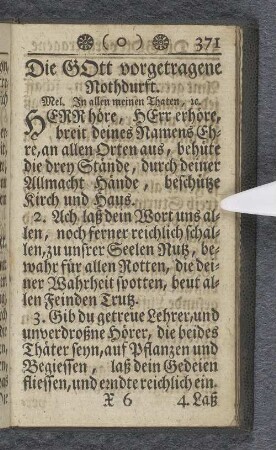 ❁ ( o ) ❁ 371
Die GOtt vorgetragene
Nothdurft.
Mel. In allen meinen Thaten, ꝛc.
HERR höre, HErr erhöre,
breit deines Namens Eh-
re, an allen Orten aus, behüte
die drey Stände, durch deiner
Allmacht Hände, beschütze
Kirch und Haus.
2. Ach laß dein Wort uns al-
len, noch ferner reichlich schal-
len, zu unsrer Seelen Nutz, be-
wahr für allen Rotten, die dei-
ner Wahrheit spotten, beut al-
len Feinden Trutz.
3. Gib du getreue Lehrer, und
unverdroßne Hörer, die beides
Thäter seyn, auf Pflanzen und
Begiessen, laß dein Gedeien
fliessen, und erndte reichlich ein.
X 6 4. Laß